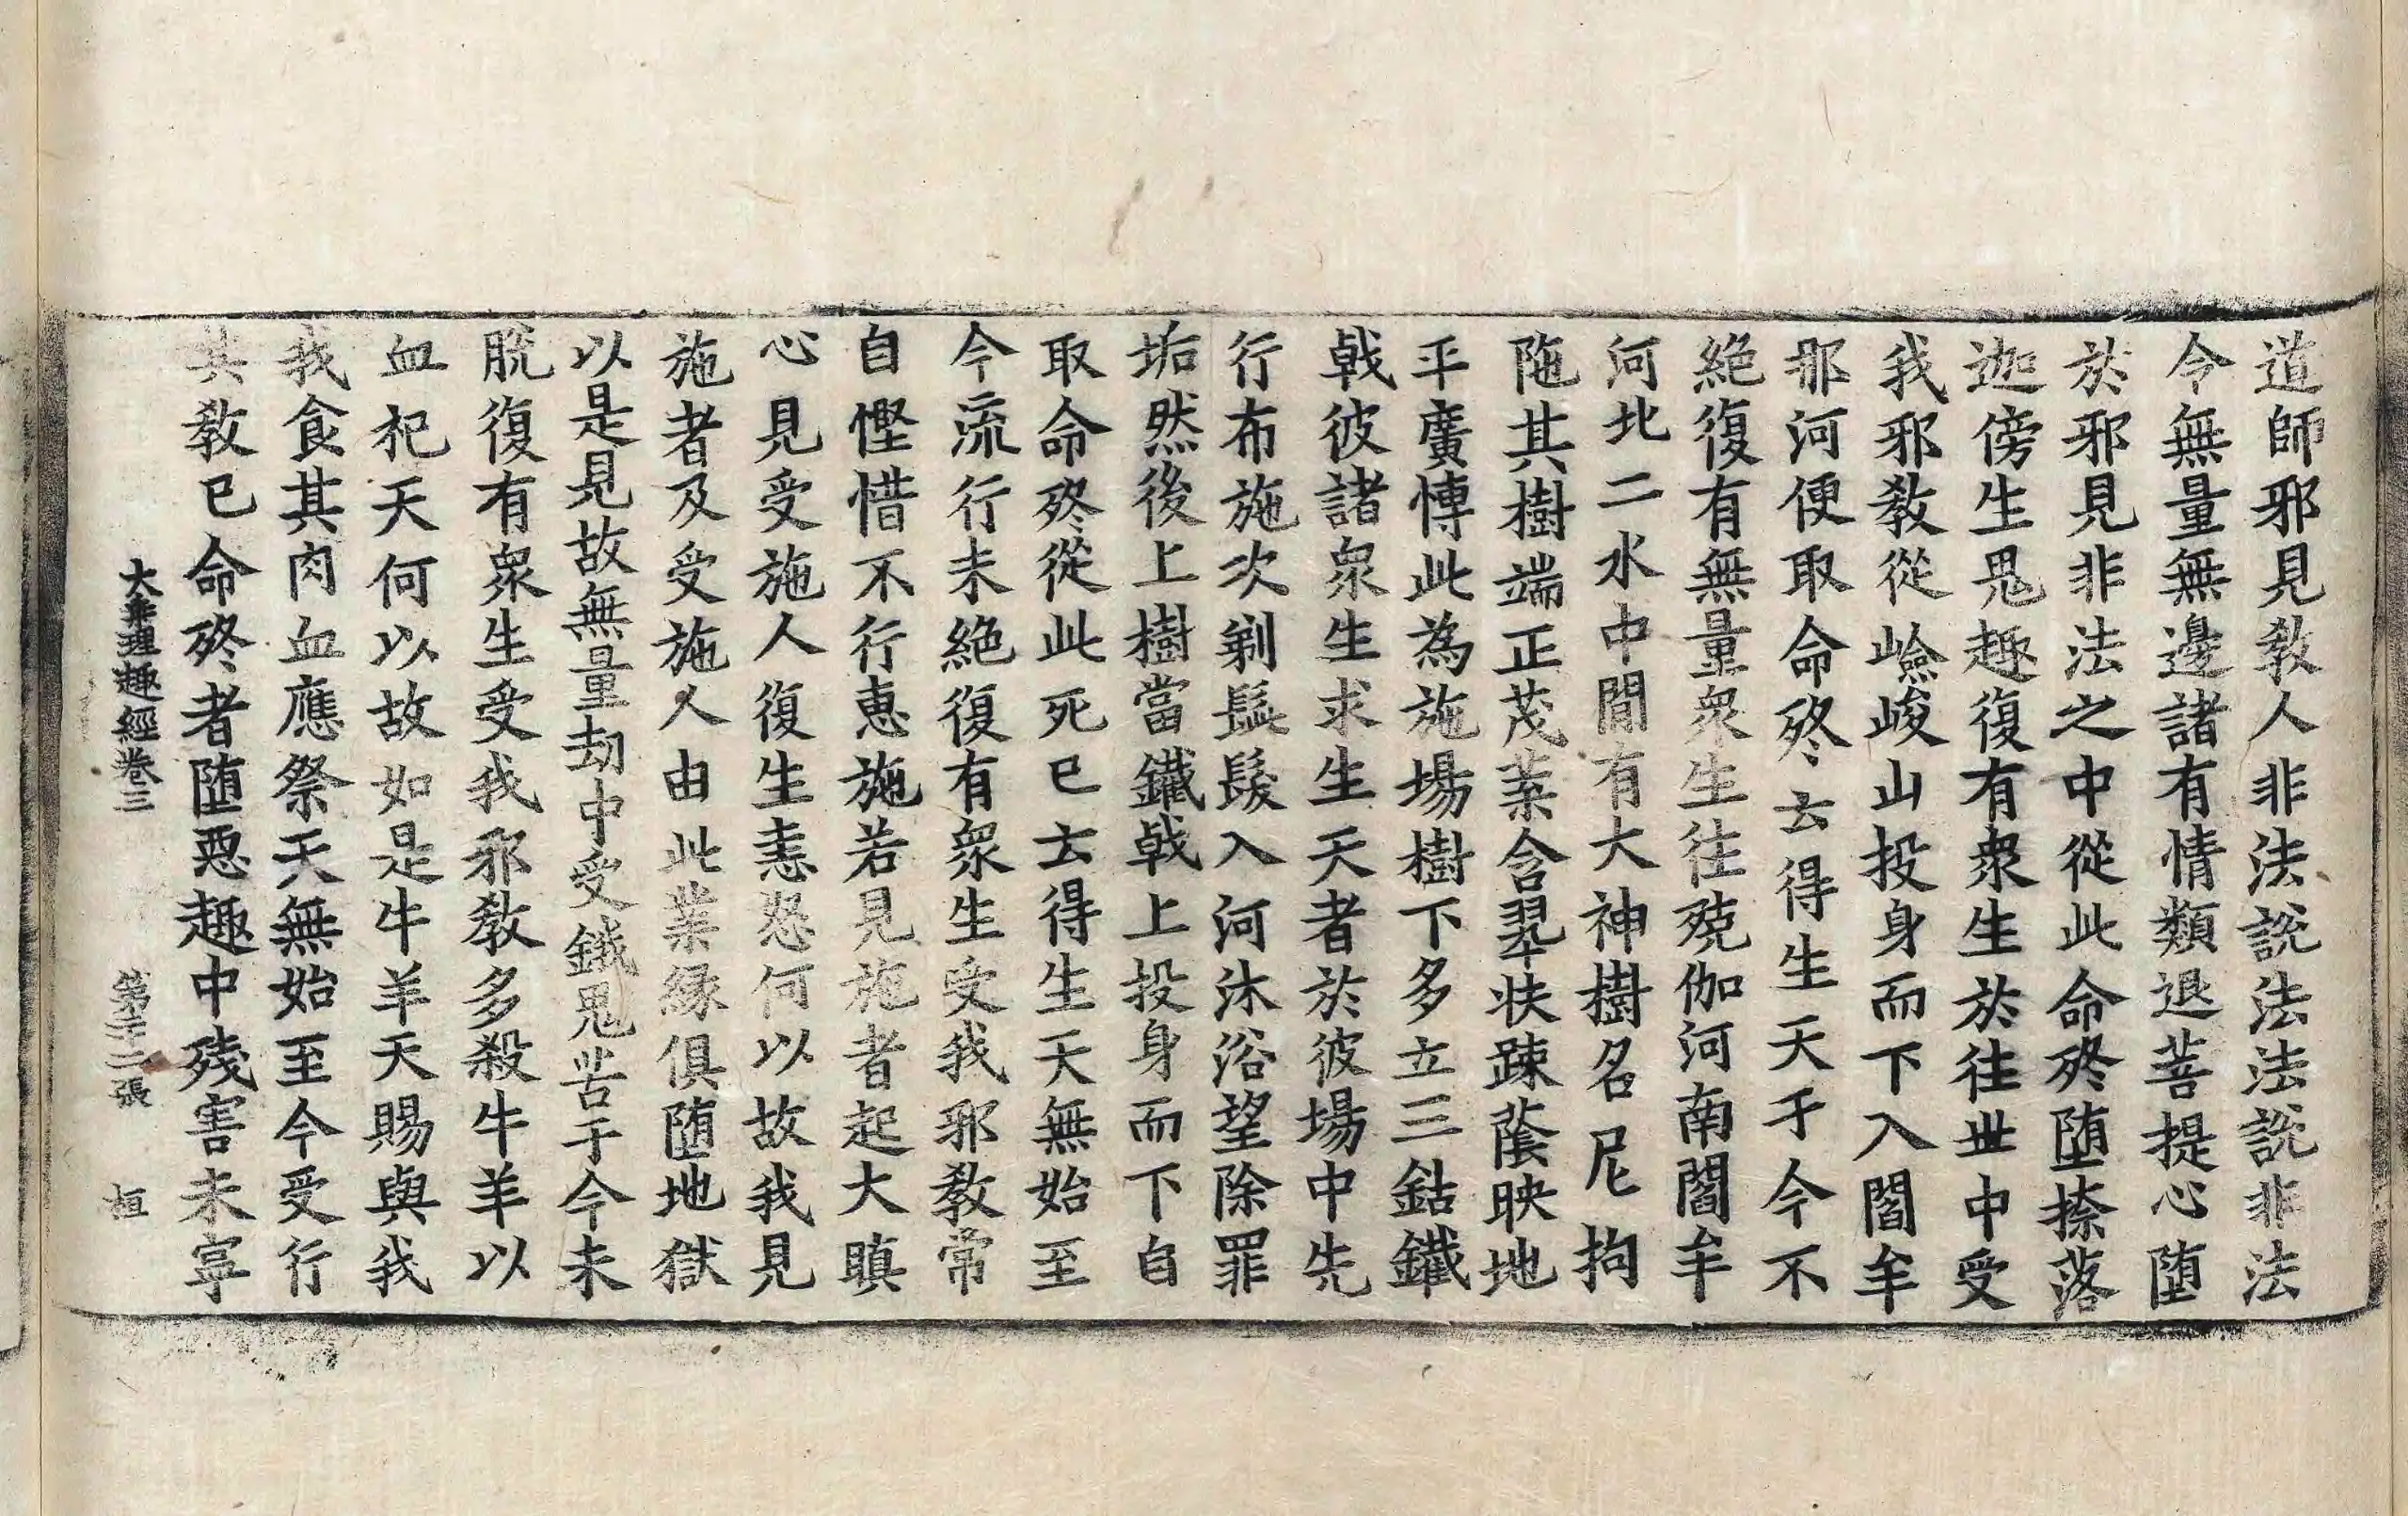 道師邪見教人非法說法法說非法
今無量無邊諸有情類退菩提心墮
於邪見非法之中從此命終墮捺落
迦傍生鬼趣復有衆生於往世中受
我邪教從嶮峻山投身而下入閻牟
那河便取命終云得生天于今不
絕復有無量衆生往殑伽河南閻牟
河北二水中閒有大神樹名尼拘
陁其樹端正茂葉含翠扶踈蔭映地
平廣慱此為施場樹下多立三鈷鐵
戟彼諸衆生求生天者於彼場中先
行布施次剃鬚髮入河沐浴望除罪
垢然後上樹當鐵戟上投身而下自
取命終從此死已云得生天無始至
今流行未絕復有衆生受我邪教常
自慳惜不行惠施若見施者起大瞋
心見受施人復生恚怒何以故我見
施者及受施人由此業緣俱墮地獄
以是見故無量劫中受餓鬼苦于今未
脫復有衆生受我邪教多殺牛羊以
血祀天何以故如是牛羊天賜與我
我食其肉血應祭天無始至今受行
其教已命終者墮惡趣中殘害未寧
大乘理趣經卷三 第二十二張 桓